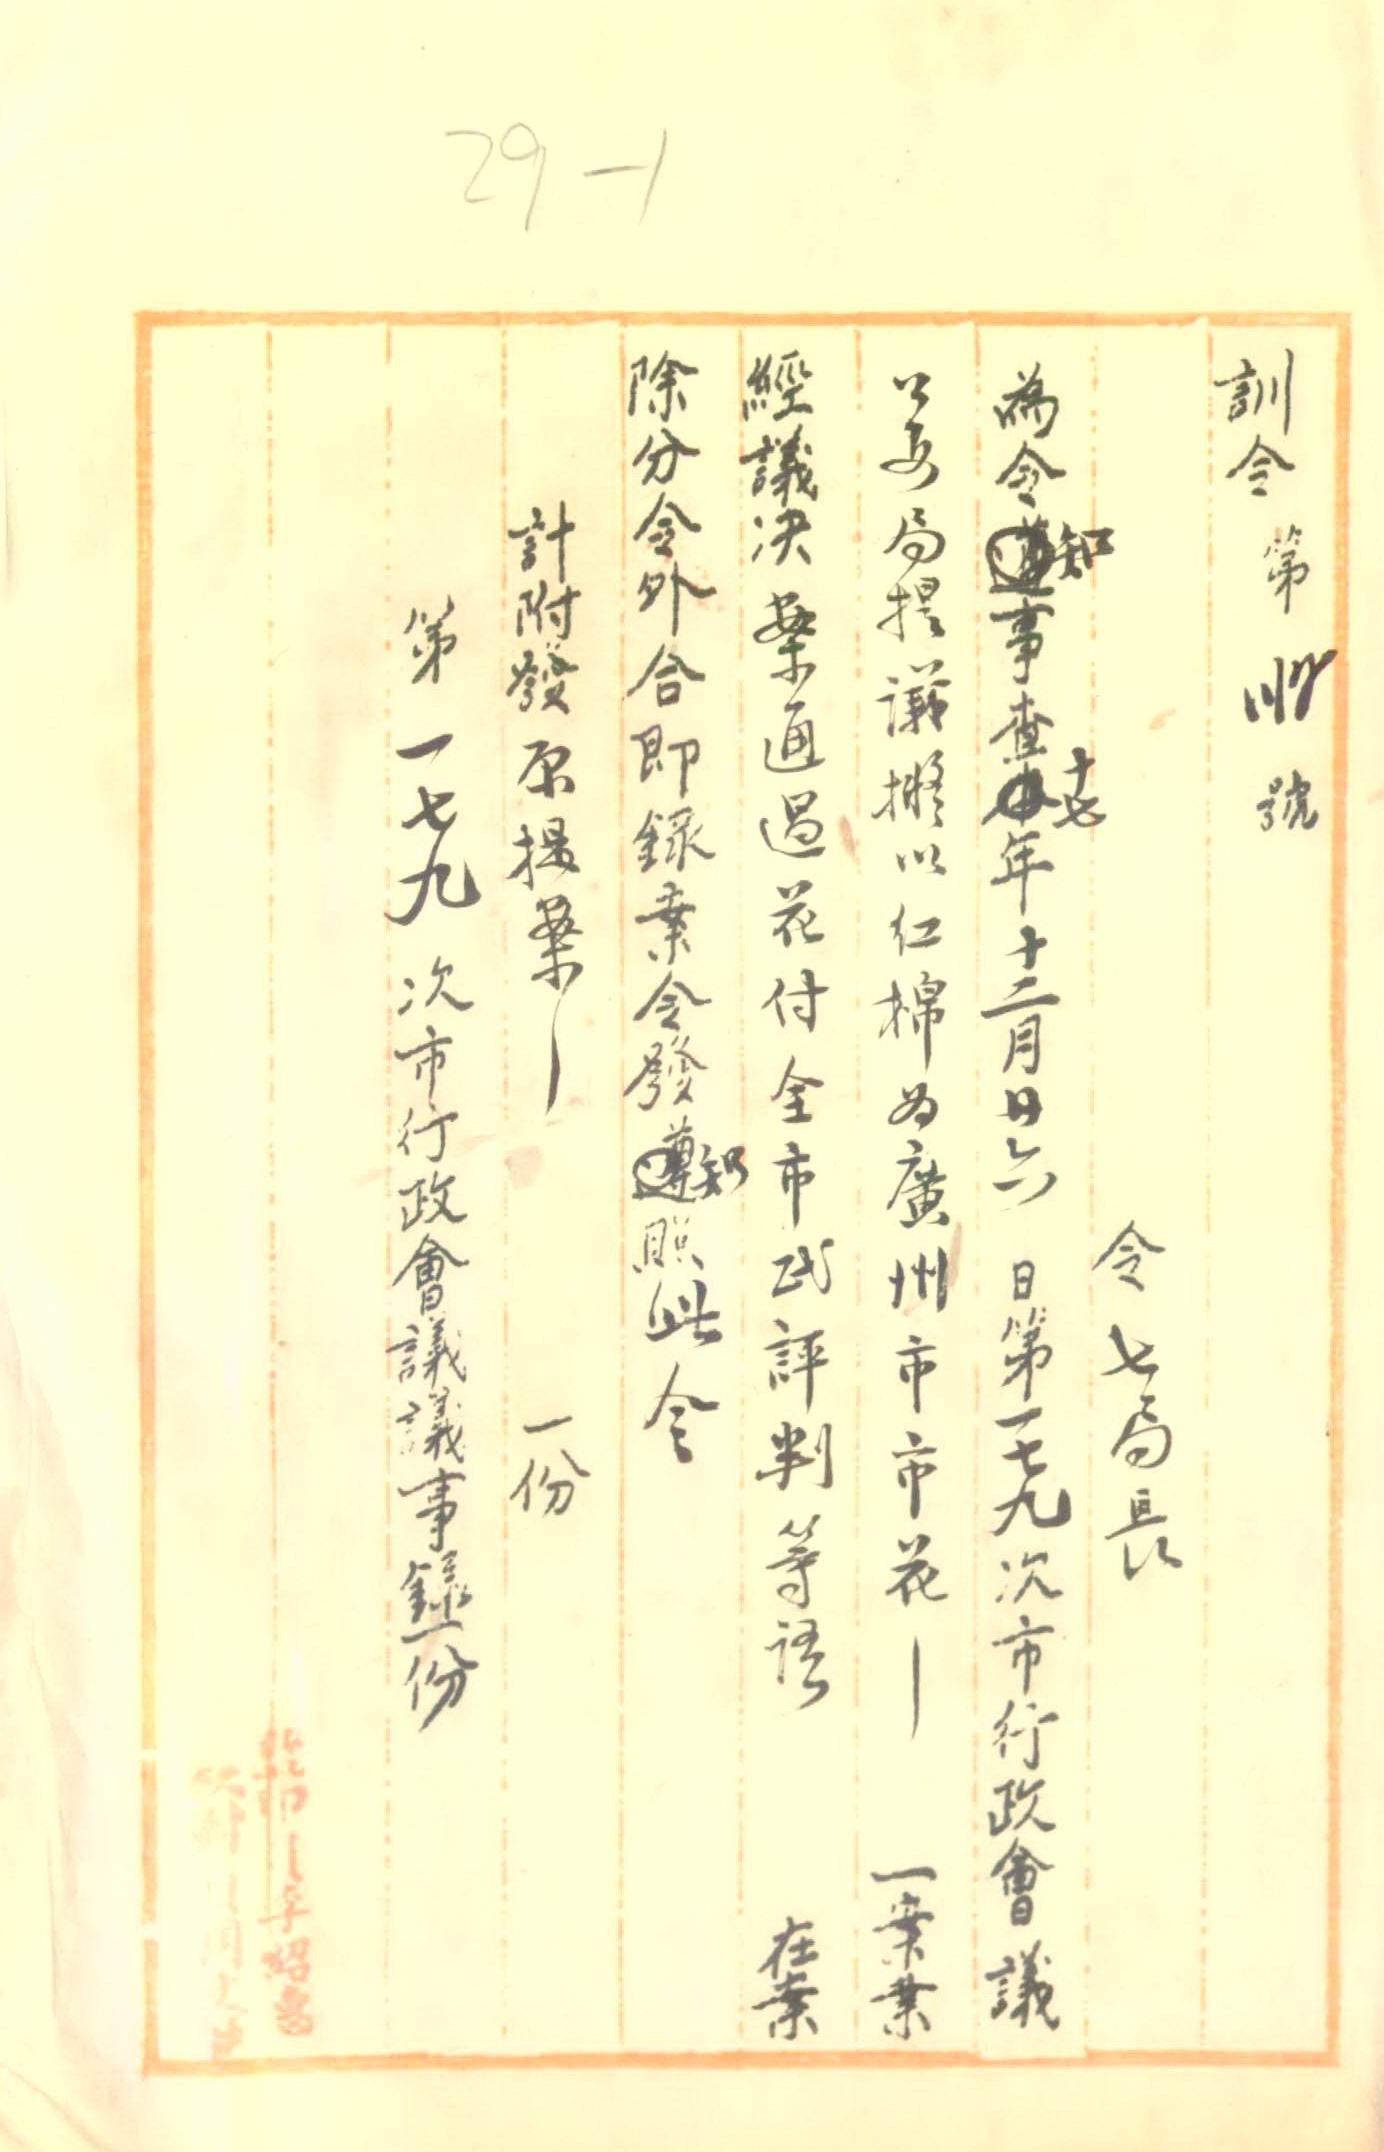 29-1
訓令 第 號
令 七局長
為令知事查十七年十二月六日第一七九次市行政會議
公安局提議擬以仁棉为廣州市市花 一案業
經議决 案通過花付全市民評判等語 在案
除分令外合即錄案令發知照此令
計附發原提案 一份
第一七九次市行政會議議事錄一份